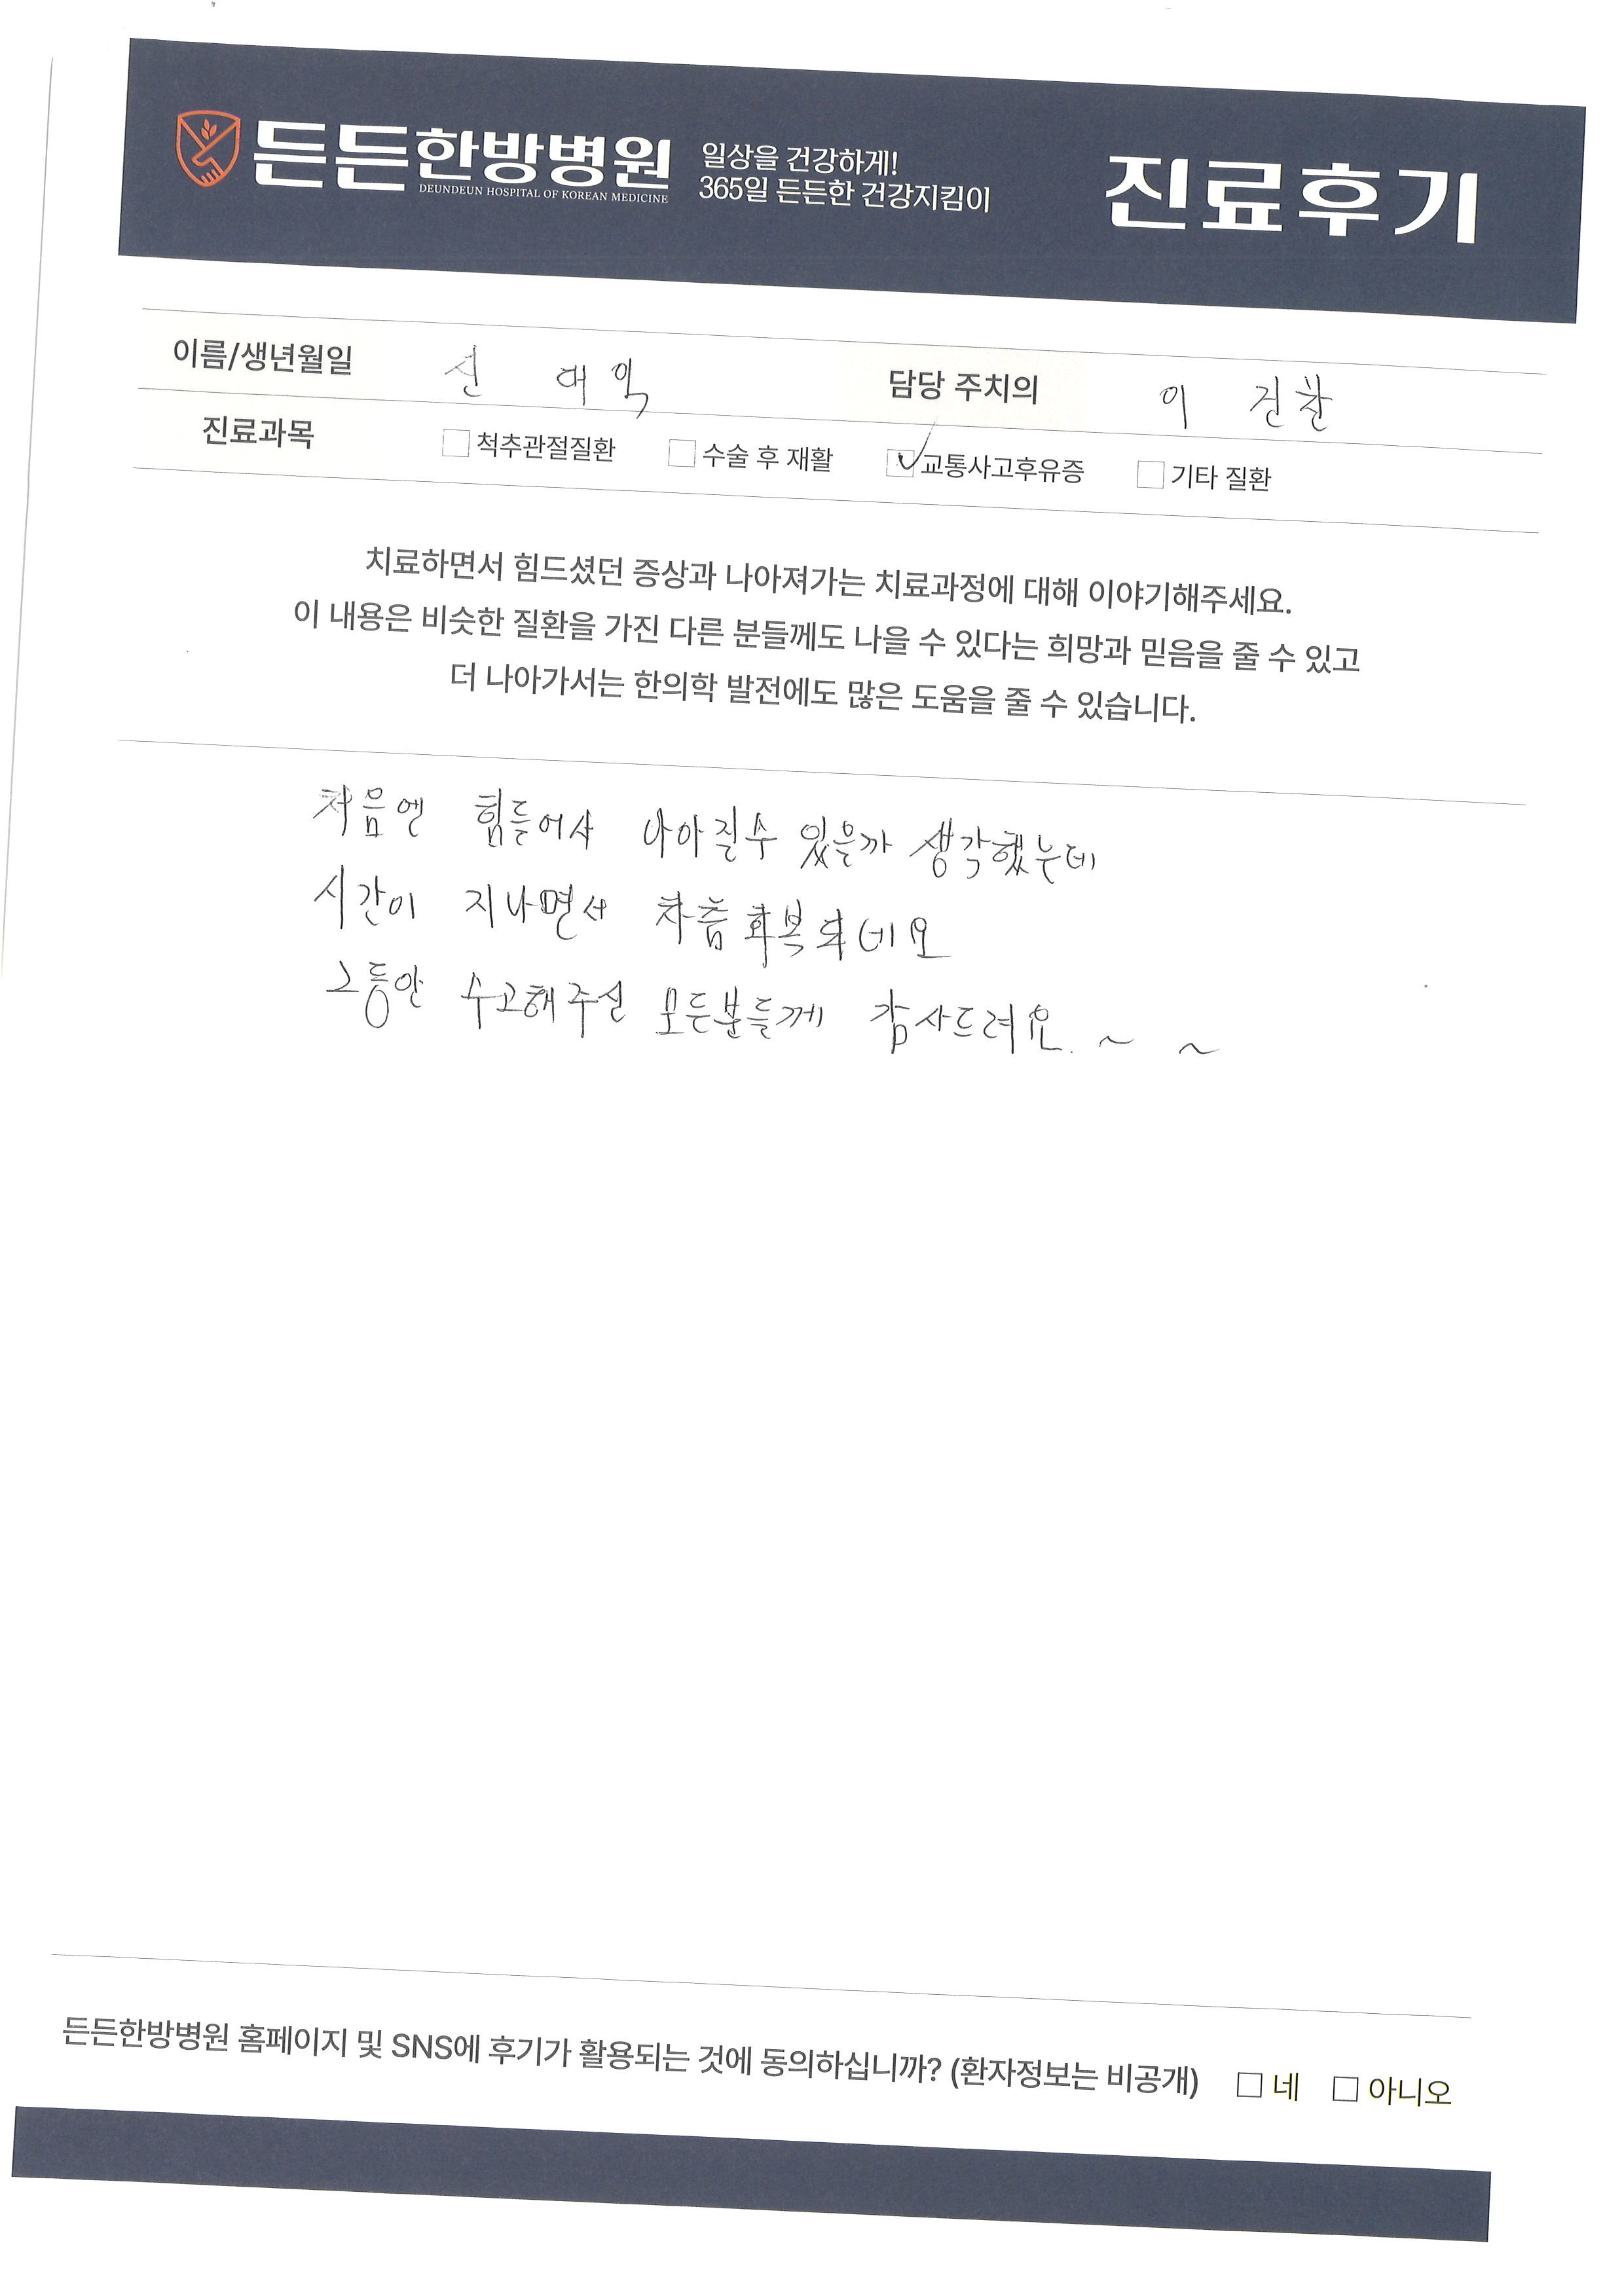 든든한방병원
DEUNDEUN HOSPITAL OF KOREAN MEDICINE
일상을 건강하게!
365일 든든한 건강지킴이
진료후기
이름/생년월일 신 대익 담당 주치의 이 건찬
진료과목 척추관절질환 수술 후 재활 교통사고후유증 기타 질환
치료하면서 힘드셨던 증상과 나아져가는 치료과정에 대해 이야기해주세요.
이 내용은 비슷한 질환을 가진 다른 분들께도 나을 수 있다는 희망과 믿음을 줄 수 있고
더 나아가서는 한의학 발전에도 많은 도움을 줄 수 있습니다.
처음엔 힘들어서 나아질수 있을까 생각했는데
시간이 지나면서 차츰 회복되네요
그동안 수고해주신 모든분들께 감사드려요. ~ ~
든든한방병원 홈페이지 및 SNS에 후기가 활용되는 것에 동의하십니까? (환자정보는 비공개) 네 아니오